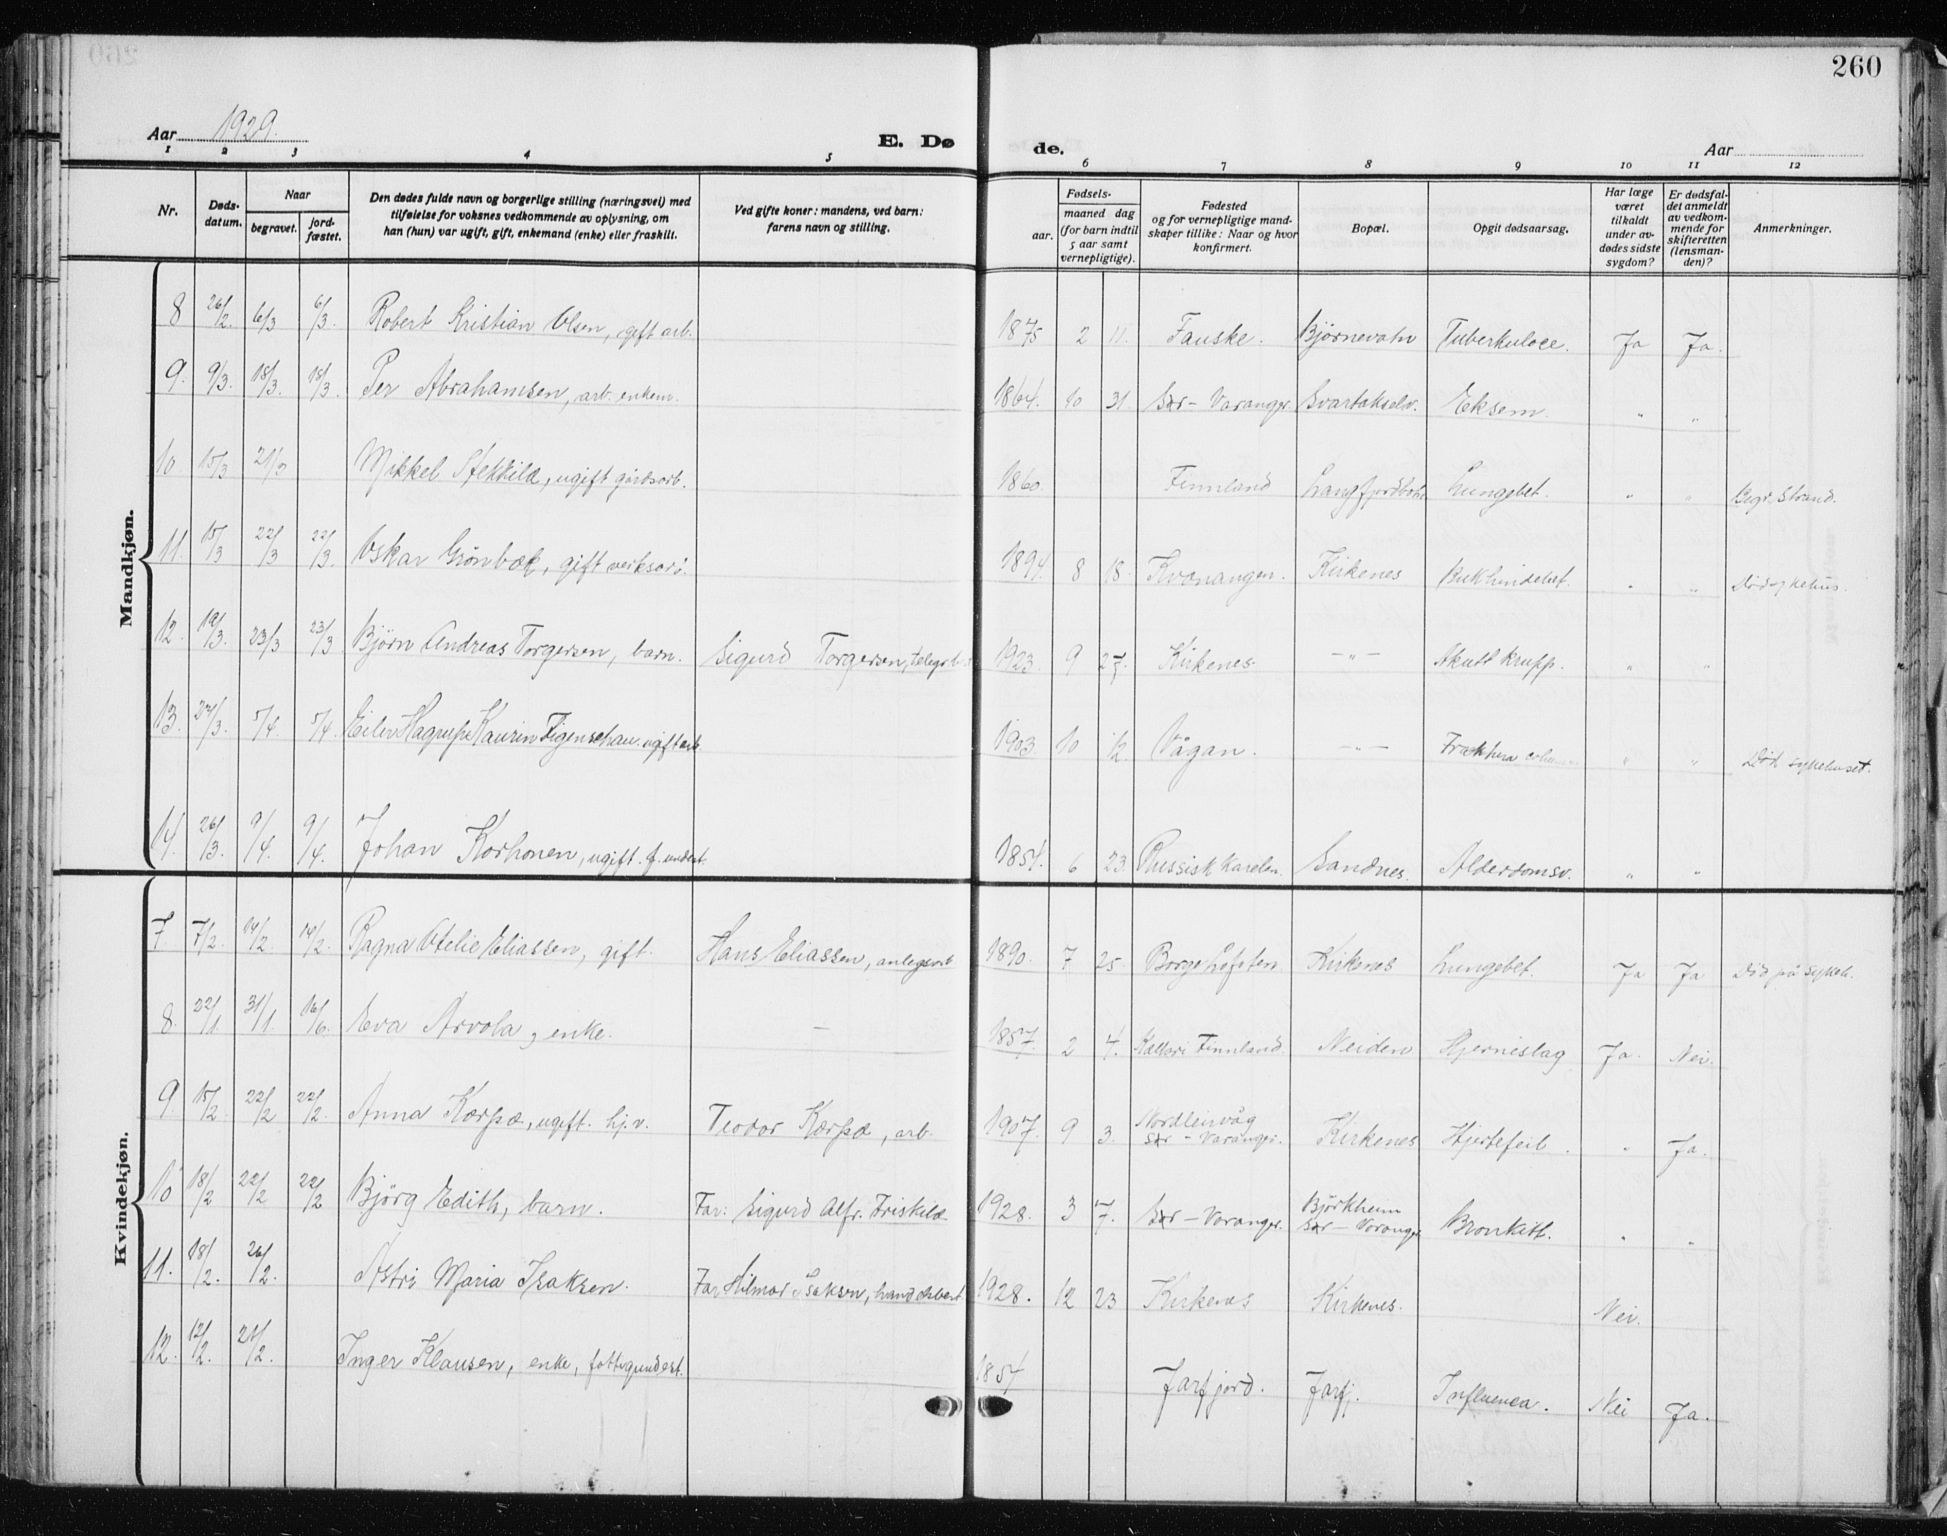 260
Aar 1929.
E. Dø
de.
Aar
1 2 3 4 5 6 7 8 9 10 11 12
Nr.
Døds-
datum.
Naar
begravet.
jord-
fæstet.
Den dødes fulde navn og borgerlige stilling (næringsvei) med
tilføielse for voksnes vedkommende av oplysning, om
han (hun) var ugift, gift, enkemand (enke) eller fraskilt.
Ved gifte koner: mandens, ved barn:
farens navn og stilling.
aar.
Fødsels-
maaned dag
(for barn indtil
5 aar samt
vernepligtige).
Fødested
og for vernepligtige mand-
skaper tillike: Naar og hvor
konfirmert.
Bopæl.
Opgit dødsaarsag.
Har læge
været
tilkaldt
under av-
dødes sidste
sygdom?
Er dødsfal-
det anmeldt
av vedkom-
mende for
skifteretten
(lensman-
den)?
Anmerkninger.
Mandkjøn.
8 26/2. 6/3 6/3. Robert Kristian Olsen, gift arb. 1875 2 11. Fauske. Bjørnevatn Tuberkulose. Ja Ja.
9. 9/3. 18/3. 18/3. Per Abrahamsen, arb. enkem. 1864. 10 31. Sør-Varanger. Svartakselv. Eksem. " "
10 15/3 21/3 Mikkel, ugift gårdsarb. 1860. Finnland Langfjordbotn Lungebet. " " Begr. Strand.
11. 15/3 22/3 22/3. Oskar Grönbæk, gift verksarb. 1894. 8 18. Kvænangen. Kirkenes Bukhindebet. " " Død sykehus.
12. 19/3. 23/3 23/3 Björn Andreas Torgersen, barn. Sigurd Torgersen, telegrb. 1923. 9 27. Kirkenes. -"- Akutt krupp. " "
13. 27/3. 5/4 5/4. Eilev Hagrup Kaurin Figenschau. ugift arb. 1903. 10 12. Vågan. -"- " " Död sykehuset.
14. 26/3. 9/4. 9/4. Johan Korhonen, ugift. f. underst. 1854. 6 23. Russisk Karelen. Sandnes. Alderdomsv. " "
Kvindekjøn.
7. 7/2. 14/2. 14/2. Ragna Otelie Eliassen, gift. Hans Eliassen, anlegsarb 1890. 7 25. Borge Lofoten. Kirkenes Lungebet. Ja Ja Död på sykeh.
8. 22/1 31/1. 16/6. Eva Arvola, enke. — 1857. 2 4. Kollari Finnland. Neiden Hjerneslag Ja. Nei.
9. 15/2. 22/2 22/2. Anna Kærpæ, ugift. hj.v. Teodor Kærpæ, arb. 1907. 9 3. Nordleirvåg
Sør-Varanger. Kirkenes Hjertefeil. " Ja.
10 18/2 22/2 22/2 Björg Edith, barn. Far: Sigurd Alfr. Friskilæ. 1928. 3 7. Sør-Varanger. Björkheim
Sør-Varanger Bronkitt. " "
11. 18/2. 26/2. Astri Maria Isaksen. Far Hilmar Isaksen, handelsbest 1928. 12 23 Kirkenes Kirkenes. Nei.
12. 12/2. 21/2. Inger Klausen, enke, fattigunderst. 1854 Jarfjord. Jarfj. Influensa. Nei Ja.